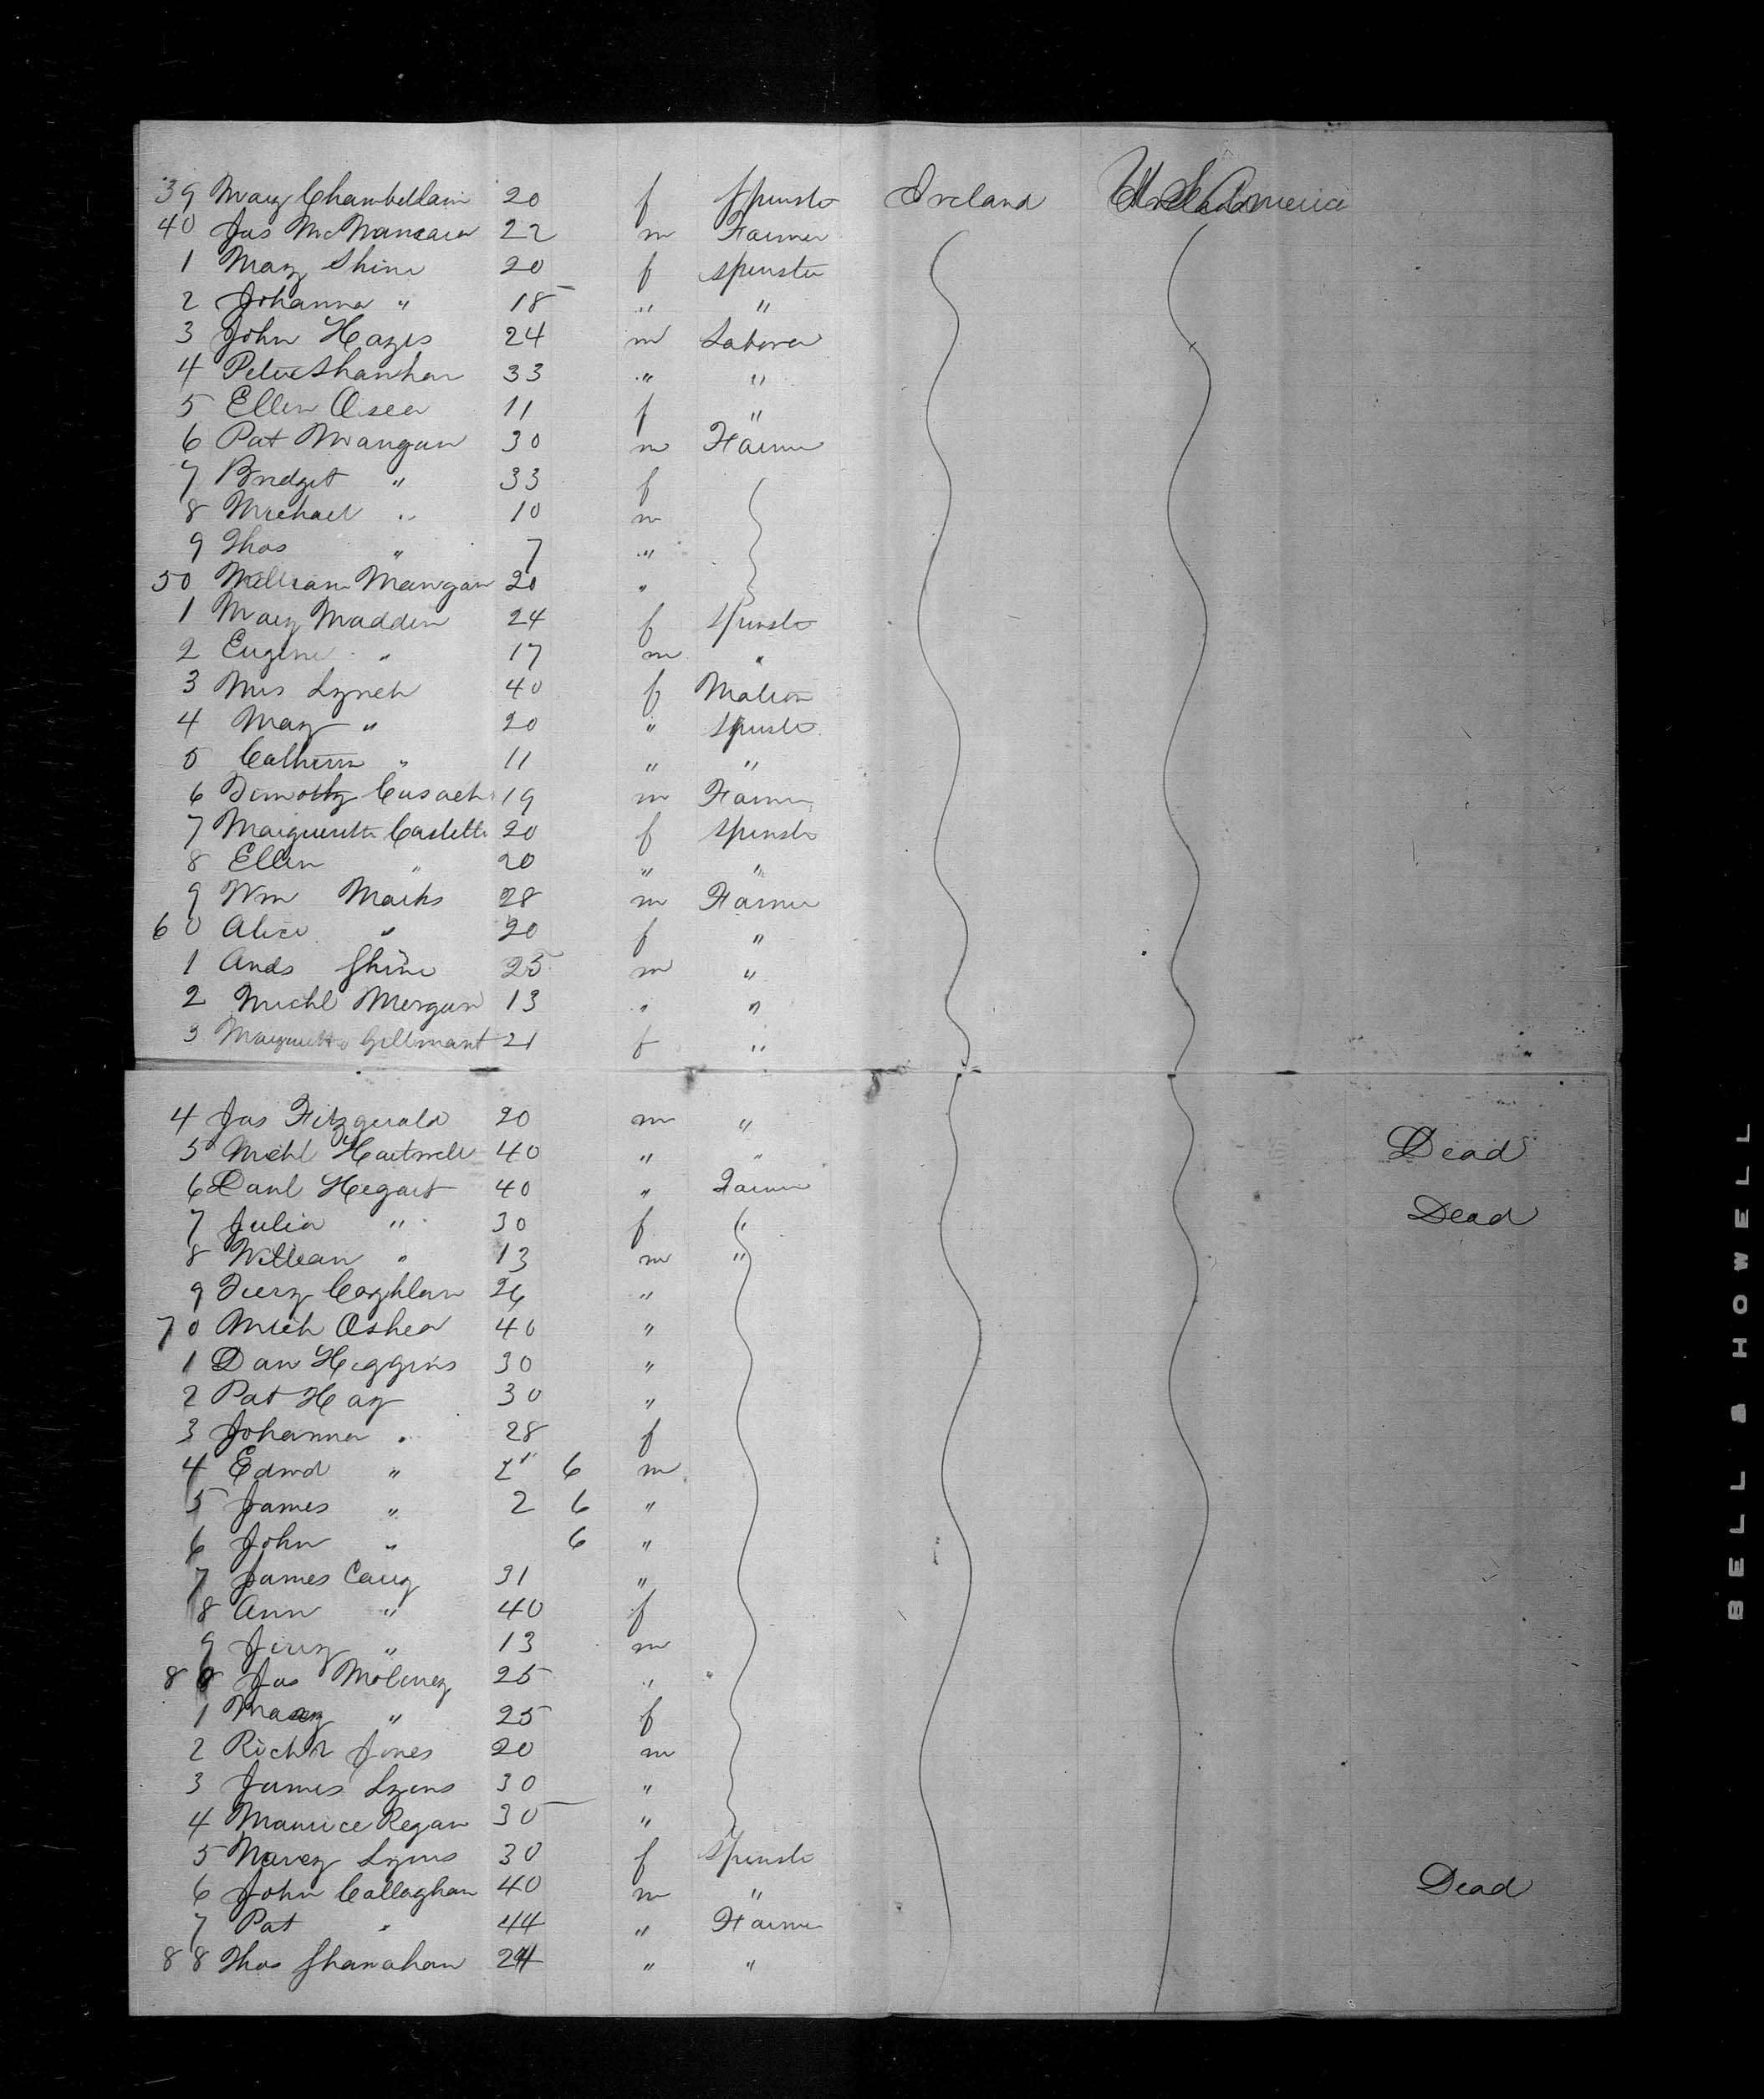 39 Mary Chamberlain 20 f Spinstr Ireland U. S. America
40 Jas McNamara 22 m Farmer
1 Mary Shine 20 f Spinster
2 Johanna " 18 " "
3 John Hayes 24 m Laborer
4 Peter Shanhan 33 " "
5 Ellen Osea 11 f "
6 Pat Mangan 30 m Farmer
7 Bridget " 33 f
8 Michael " 10 m
9 Thos " 7 "
50 William Mangan 20 "
1 Mary Madden 24 f Spinstr
2 Eugene " 17 m "
3 Mrs Lynch 40 f Matron
4 Mary " 20 " Spinstr
5 Catherin " 11 " "
6 Timothy Cusack 19 m Farmer
7 Marguerette Castette 20 f Spinstr
8 Ellen " 20 " "
9 Wm Marks 28 m Farmer
60 Alice " 20 f "
1 Ands Shine 25 m "
2 Michl Mergan 13 " "
3 Marguette Gillmant 21 f "
4 Jas Fitzgerald 20 m "
5 Michl Hartwell 40 " " Dead
6 Danl Hegart 40 " Farmer
7 Julia " 30 f " Dead
8 William " 13 m "
9 Jerry Coghlan 26 "
70 Mich Oshea 40 "
1 Dan Higgins 30 "
2 Pat Hay 30 "
3 Johanna " 28 f
4 Edwd " 6 m
5 James " 2 6 "
6 John " 6 "
7 James Carey 31 "
8 Ann " 40 f
9 Jerry " 13 m
80 Jas Moloney 25 "
1 Mary " 25 f
2 Richd Jones 20 m
3 James Lyons 30 "
4 Maurice Regan 30 "
5 Marey Lyons 30 f Spinstr
6 John Callaghan 40 m " Dead
7 Pat " 44 " Farmer
88 Thos Shanahan 24 " "
BELL & HOWELL